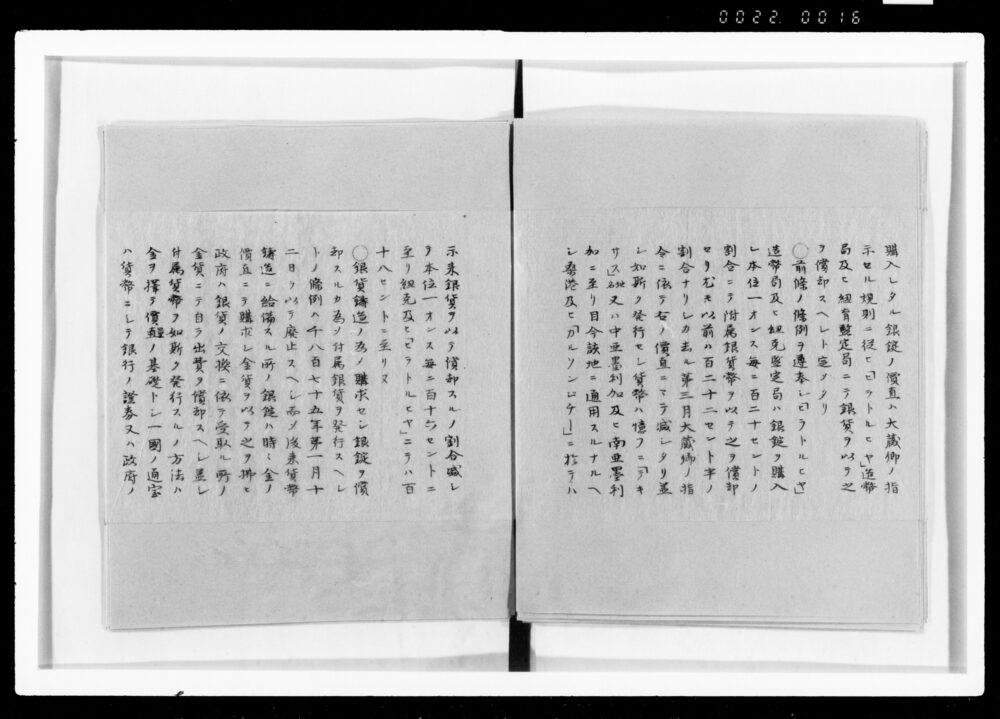 0022. 0016
購入シタル銀錠ノ價直ハ大蔵卿ノ指
示セル規則ニ從ヒ「ヒラトルヒヤ」造幣
局及ヒ紐育鑒定局ニテ銀貨ヲ以テ之
ヲ償却スヘシト定メタリ
◯前條ノ條例ヲ遵奉シ「ヒラトルヒヤ」
造幣局及ヒ紐克鑒定局ハ銀錠ヲ購入
シ本位一オンス每ニ百二十セントノ
割合ニテ附属銀貨幣ヲ以テ之ヲ償却
セリ尤モ以前ハ百二十二セント半ノ
割合ナリシカ去ル第三月大蔵卿ノ指
令ニ依テ右ノ價直ニマテ減シタリ蓋
シ如斯ク発行セシ貨幣ハ憶フニ「テキ
サス」又ハ中亜墨利加及ヒ南亜墨利
加ニ至リ目今該地ニ通用スルナルヘ
シ桑港及ヒ「カルソンシチー」ニ於テハ
示来銀貨ヲ以テ償却スルノ割合減シ
テ本位一オンス每ニ百十六セントニ
至リ紐克及ヒ「ヒラトルヒヤ」ニテハ百
十八セントニ至リヌ
◯銀貨鋳造ノ為メ購求セシ銀錠ヲ償
却スルカ為メ付属銀貨ヲ発行スヘシ
トノ條例ハ千八百七十五年第一月十
二日ヲ以テ廃止スヘシ而メ後来貨幣
鋳造ニ給備スル所ノ銀錠ハ時々金ノ
價直ニテ購求シ金貨ヲ以テ之ヲ拂ヒ
政府ハ銀貨ノ交換ニ依テ受取ル所ノ
金貨ニテ自ラ出費ヲ償却スヘシ蓋シ
付属貨幣ヲ如斯ク発行スルノ方法ハ
金ヲ擇テ價直ノ基礎トシ一國ノ通宝
ハ貨幣ニシテ銀行ノ證券又ハ政府ノ